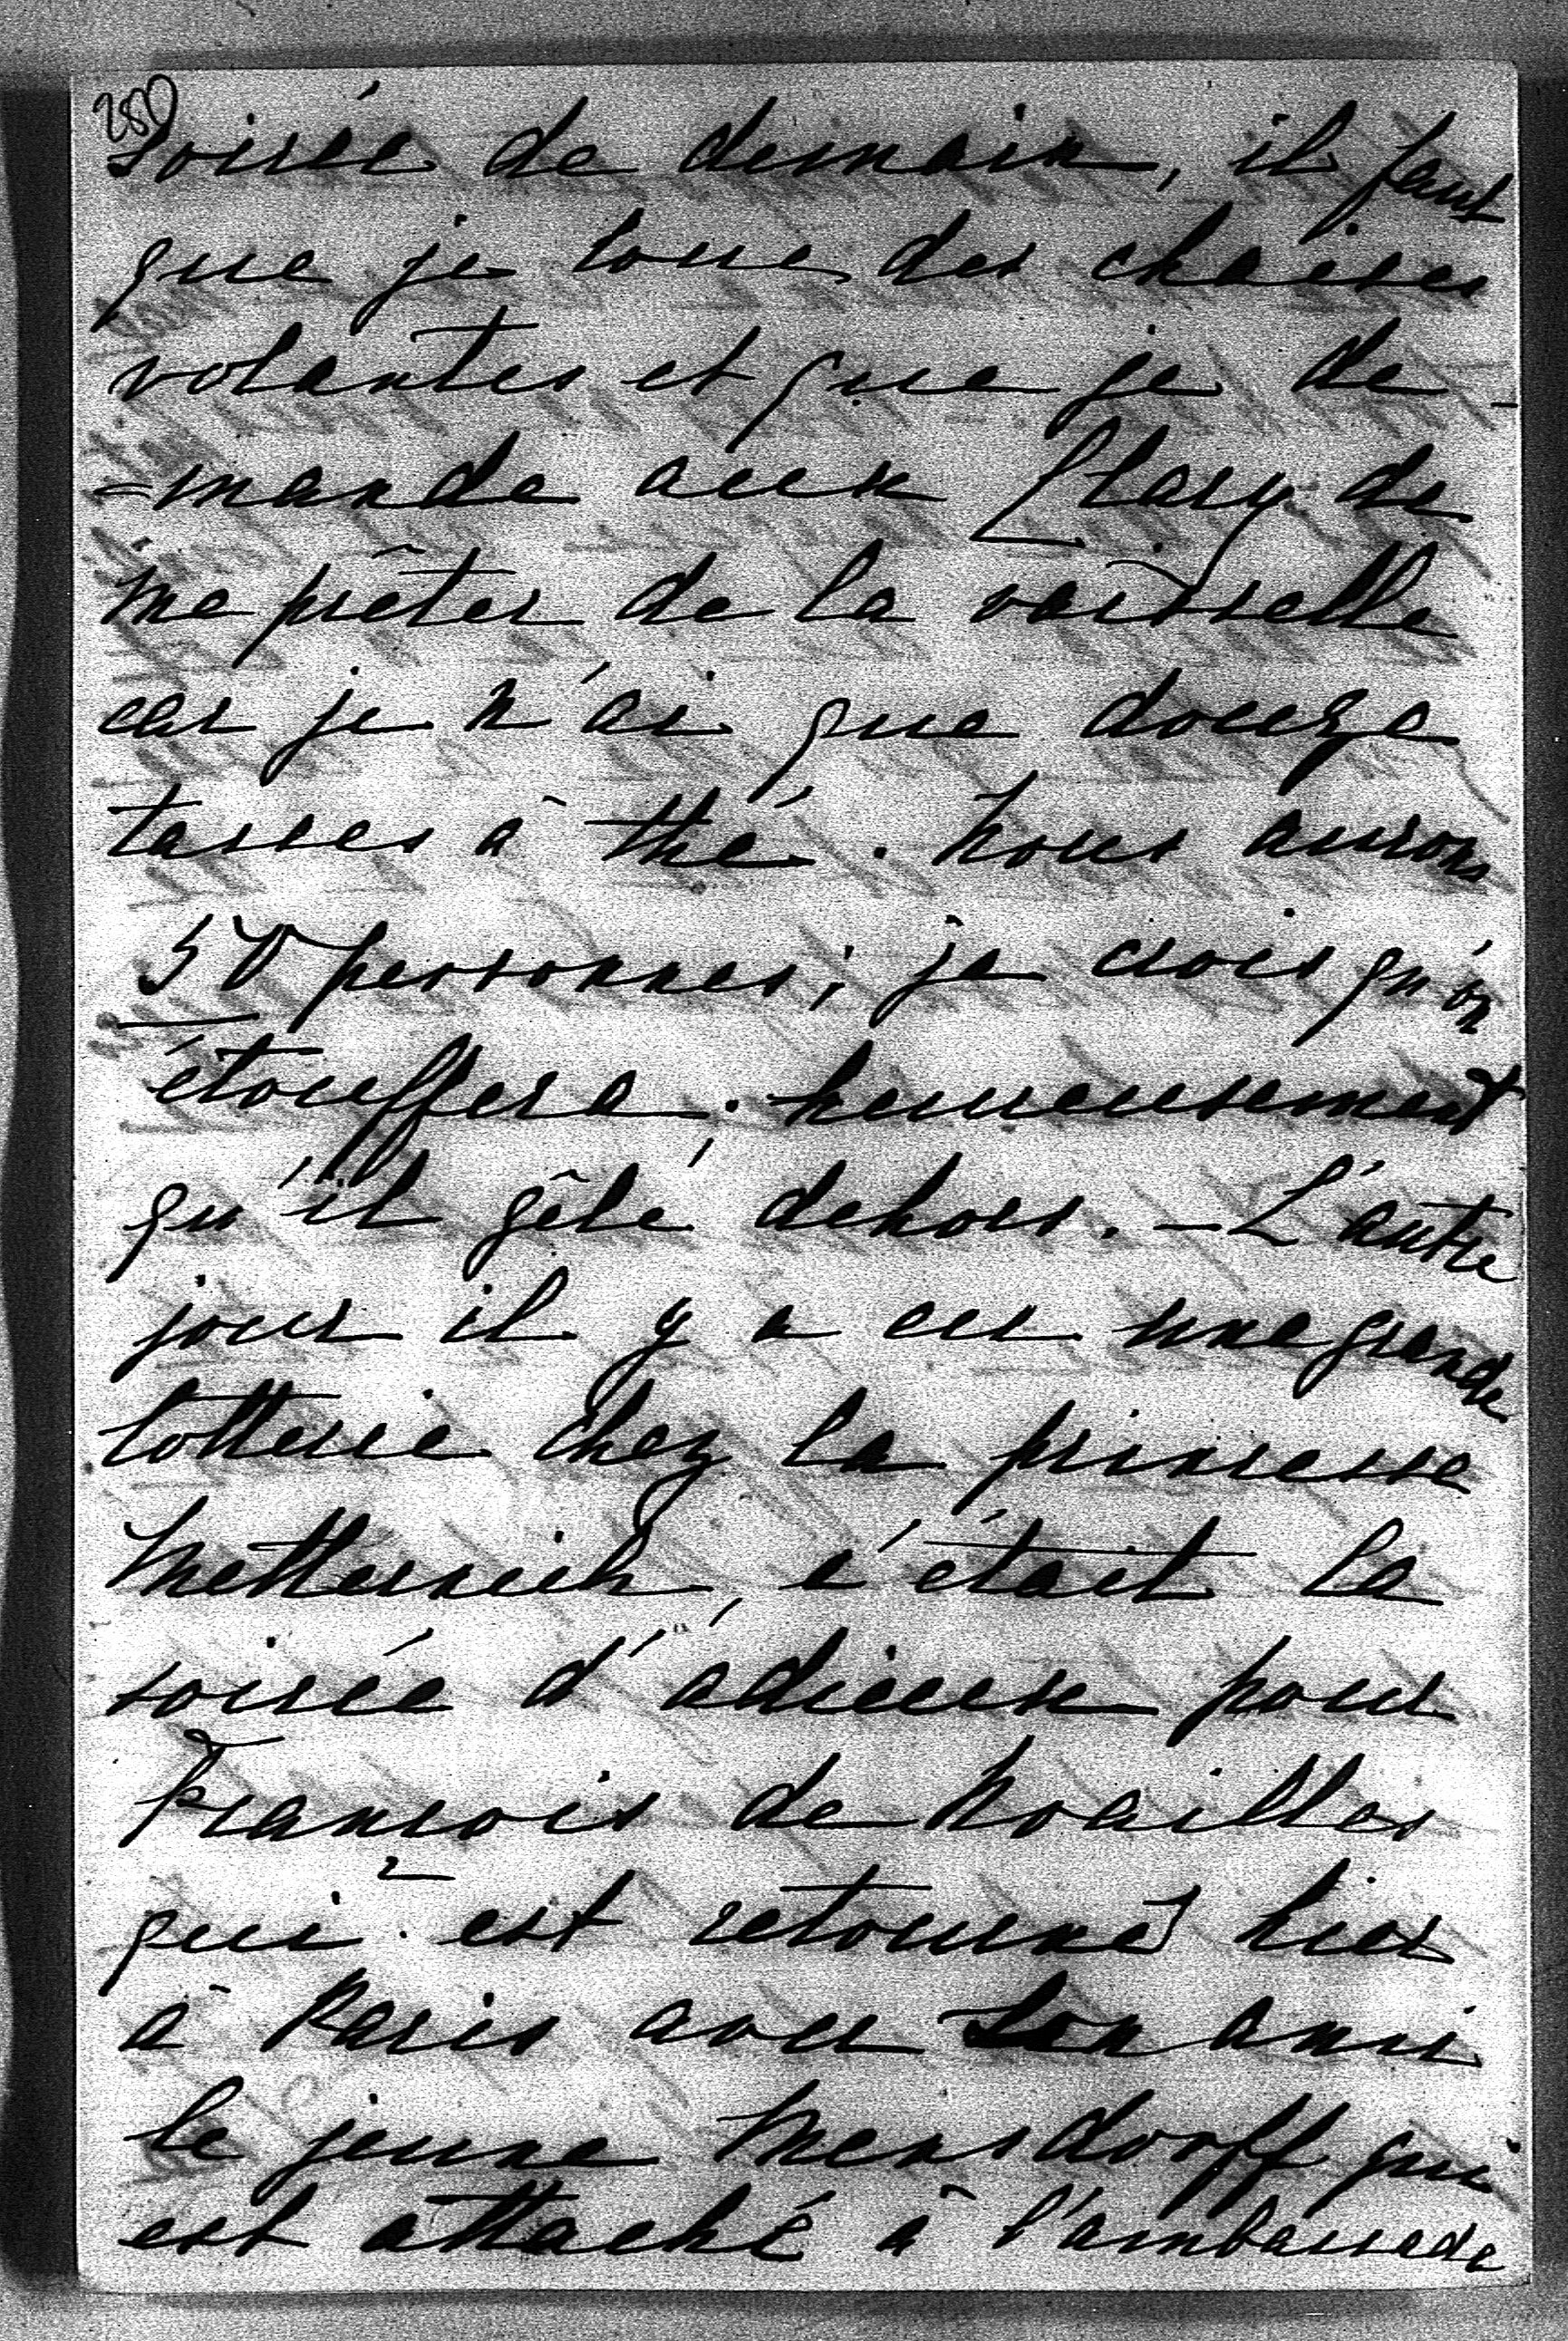 280
soirée de demain, il faut
que je loue des chaises
volantes et que je de-
-mande aux Clary de
me prêter de la vaisselle
car je n'ai que douze
tasses à thé. Nous aurons
50 personnes; je crois qu'on
étouffera; heureusement
qu'il gèle dehors. – L'autre
jour il y a eu une grande
lotterie chez la princesse
Metternich, c'était la
soirée d'adieux pour
François de Noailles
qui est retourné hier
à Paris avec son ami
le jeune Mensdorff qui
est attaché à l'ambassade